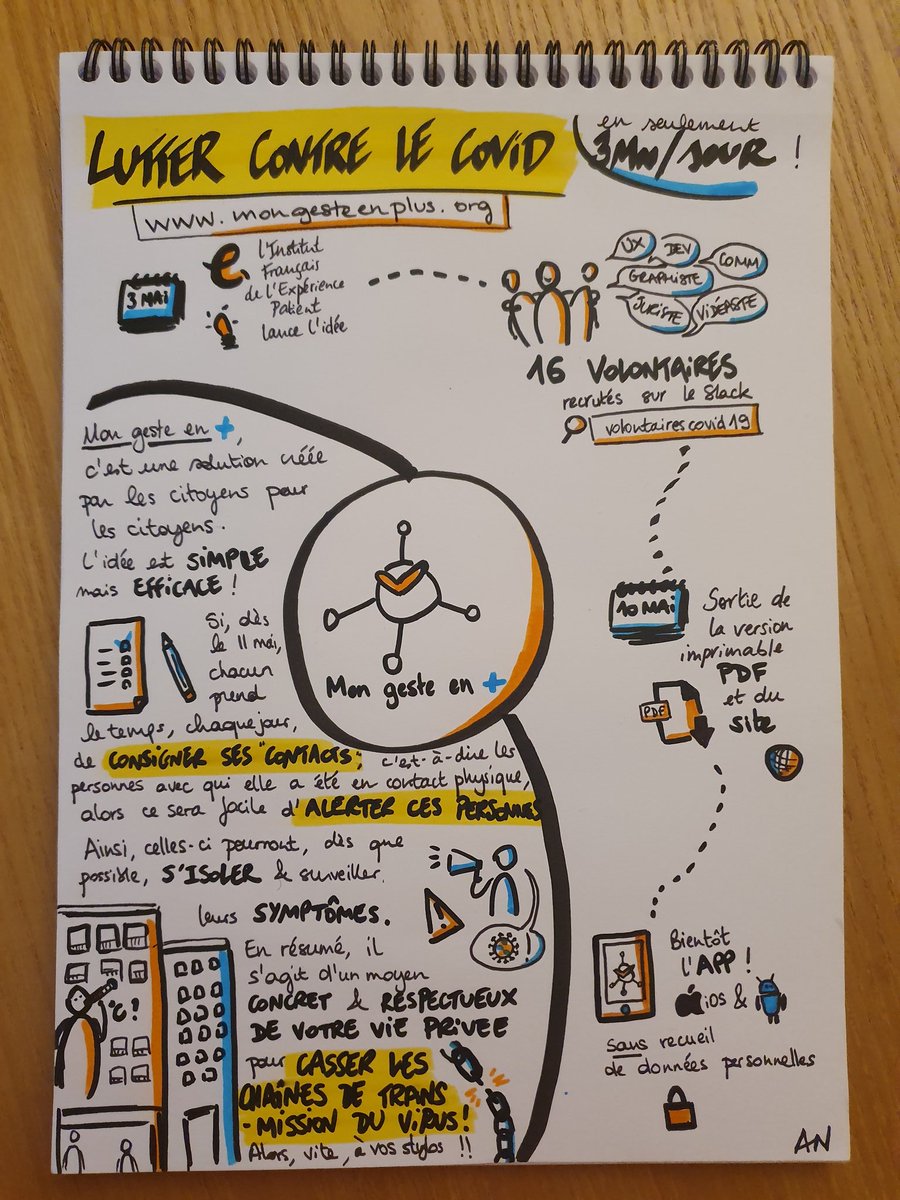 LUTTER CONTRE LE COVID
en seulement
3MN/JOUR !
www.mongesteenplus.org
3 MAI
l'Institut
Français
de l'Expérience
Patient
lance l'idée
UX
DEV
COMM
GRAPHISTE
JURISTE
VIDÉASTE
16 VOLONTAIRES
recrutés sur le Slack
volontairescovid19
Mon geste en +,
c'est une solution créée
par les citoyens pour
les citoyens.
L'idée est SIMPLE
mais EFFICACE !
Si, dès
le 11 mai,
chacun
prend
le temps, chaque jour,
de CONSIGNER SES "CONTACTS", c'est-à-dire les
personnes avec qui elle a été en contact physique,
alors ce sera facile d'ALERTER CES PERSONNES
Ainsi, celles-ci pourront, dès que
possible, S'ISOLER & surveiller
leurs SYMPTÔMES.
En résumé, il
s'agit d'un moyen
CONCRET & RESPECTUEUX
DE VOTRE VIE PRIVEE
pour CASSER LES
CHAÎNES DE TRANS
-MISSION DU VIRUS !
Alors, vite, à vos stylos !!
Mon geste en +
10 MAI
Sortie de
la version
imprimable
PDF
et du
SITE
PDF
Bientôt
l'APP !
iOS &
sans recueil
de données personnelles
AN